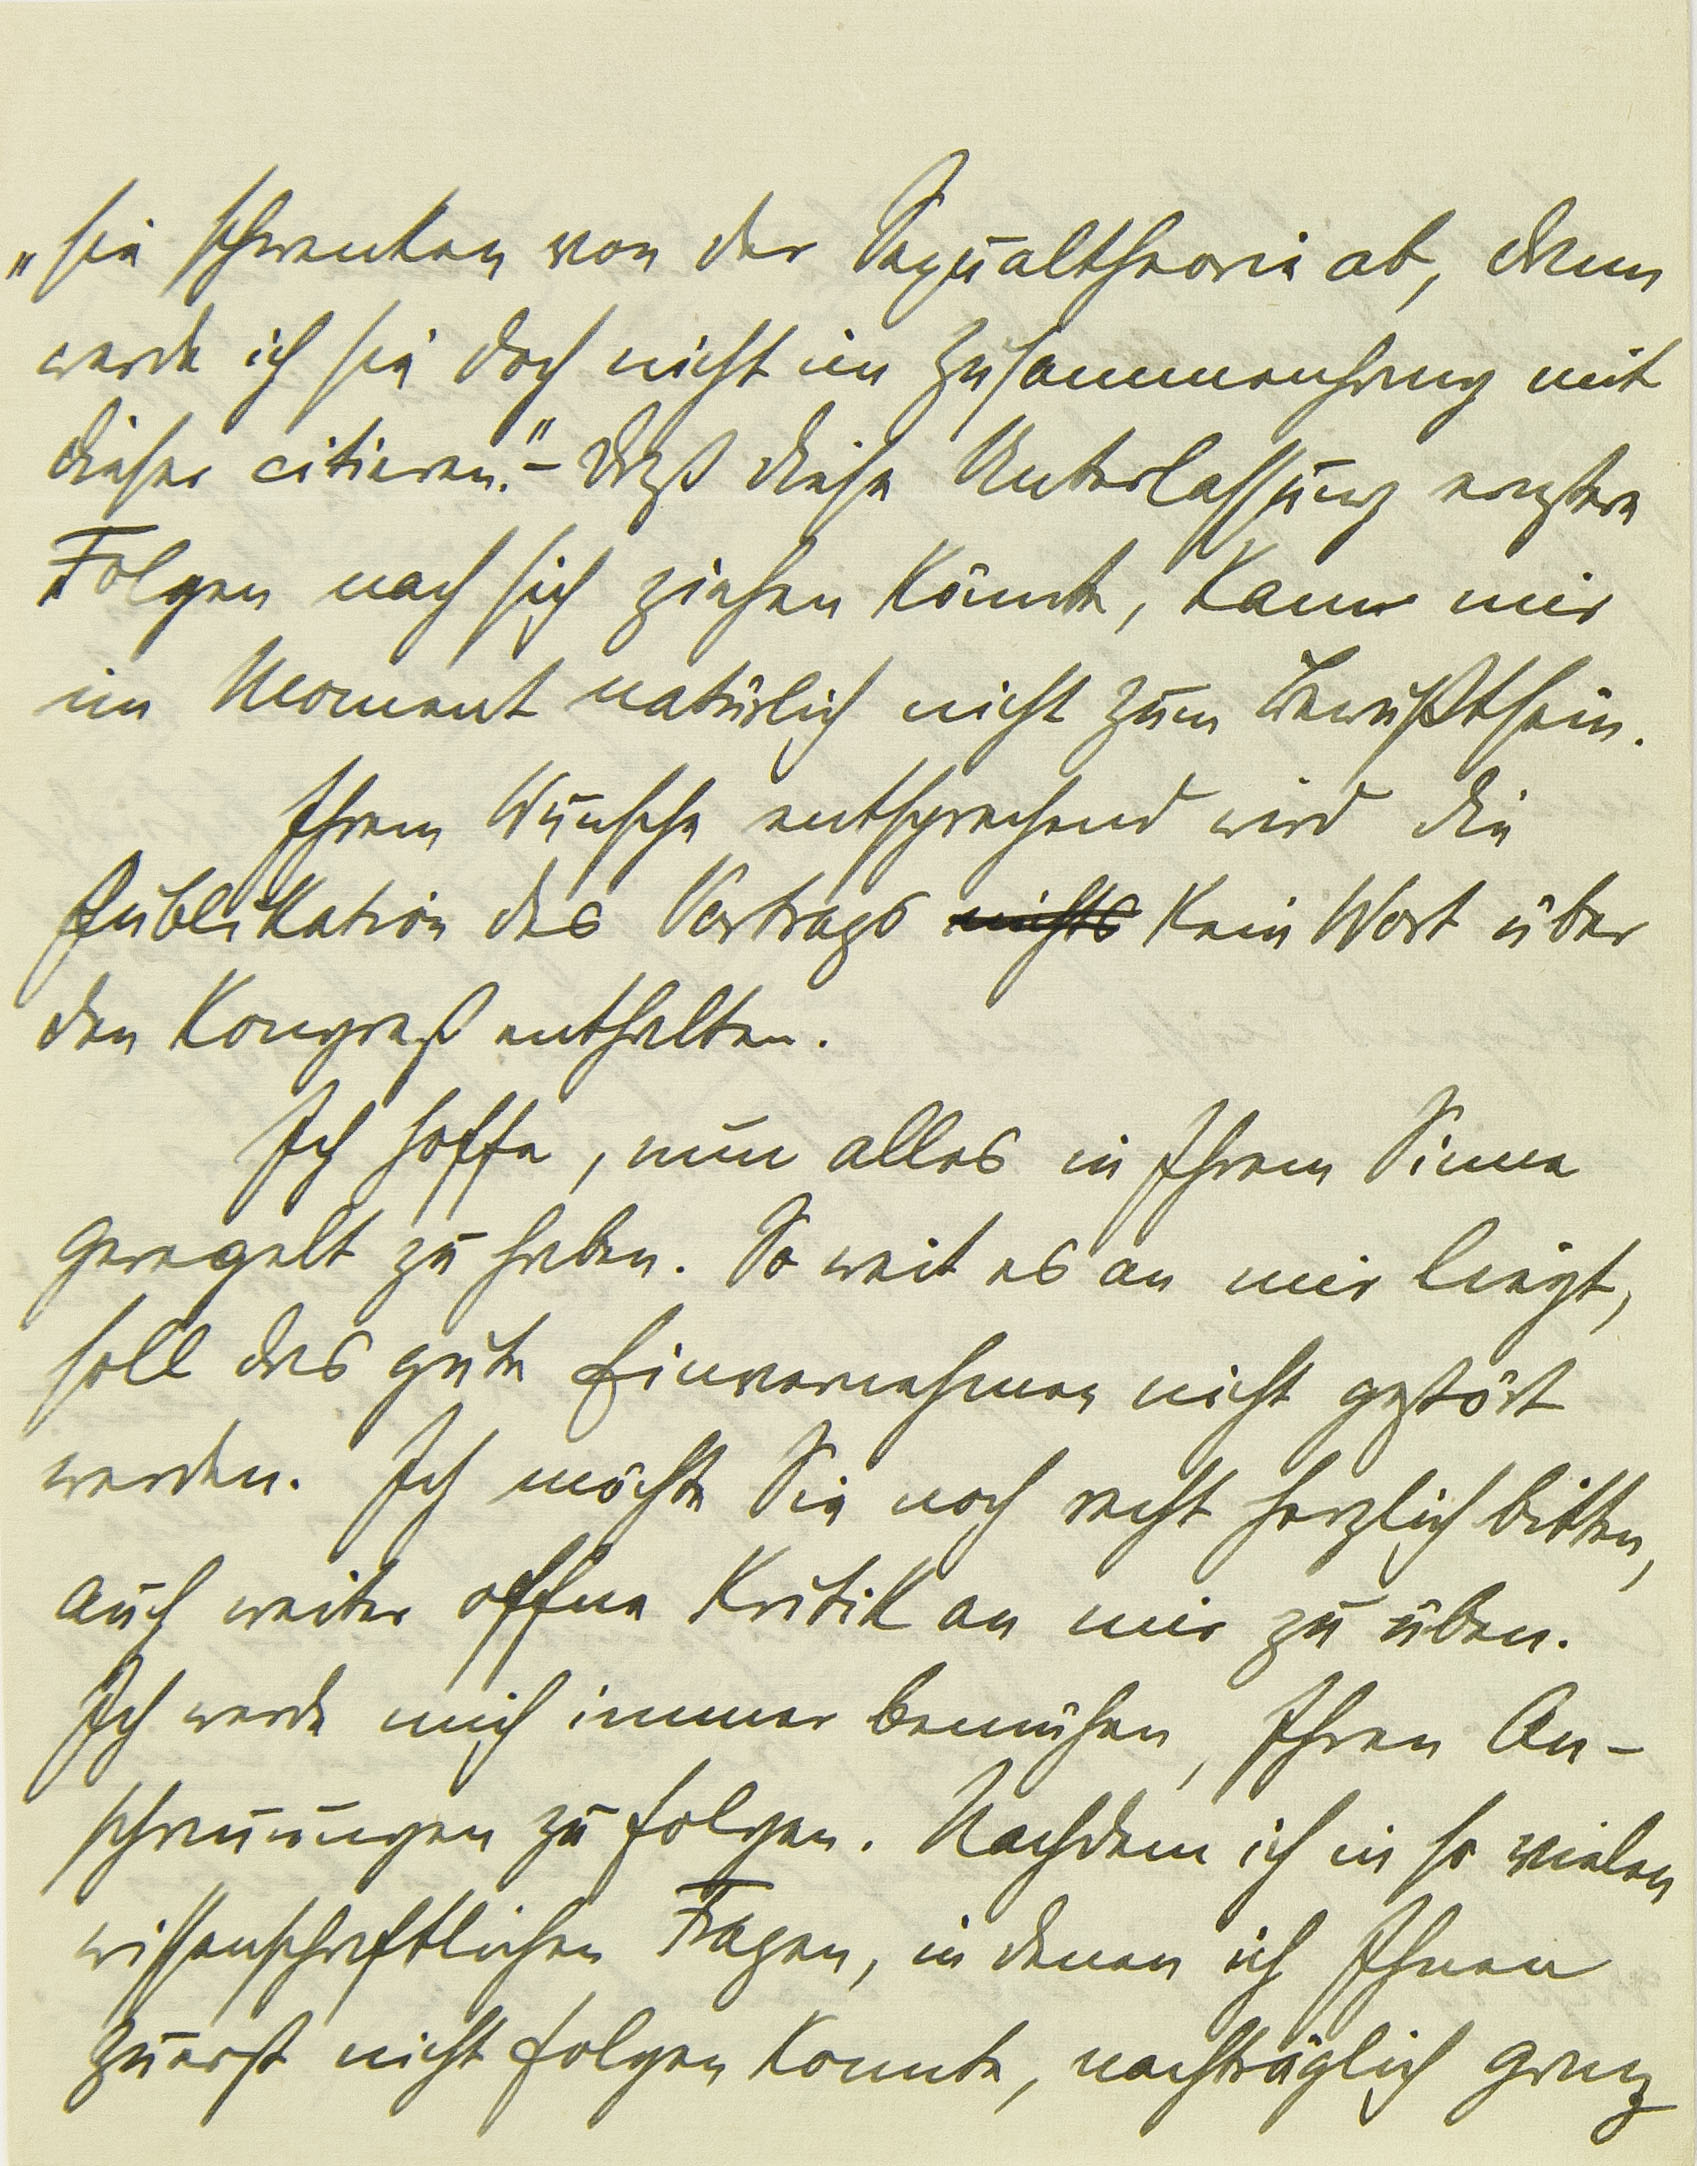 „sie schwenken von der Sexualtheorie ab, dann
werde ich sie doch nicht im Zusammenhang mit
dieser citieren.“ – Daß diese Unterlassung ernstere
Folgen nach sich ziehen könnte, kam mir
im Moment natürlich nicht zum Bewußtsein.
Ihrem Wunsche entsprechend wird die
Publikation des Vortrags nichts kein Wort über
den Kongreß enthalten.
Ich hoffe, nun alles in Ihrem Sinne
geregelt zu haben. So weit es an mir liegt,
soll das gute Einvernehmen nicht gestört
werden. Ich möchte Sie noch recht herzlich bitten,
auch weiter offne Kritik an mir zu üben.
Ich werde mich immer bemühen, Ihren An-
schauungen zu folgen. Nachdem ich in so vielen
wissenschaftlichen Fragen, in denen ich Ihnen
zuerst nicht folgen konnte, nachträglich ganz